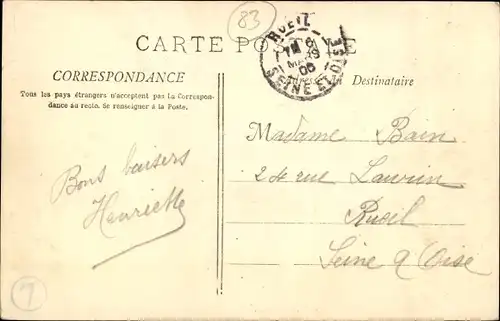 83
CARTE PO
RUEIL
SEINE ET OISE
CORRESPONDANCE
Destinataire
Tous les pays étrangers n'acceptent pas la Correspon-
dance au recto. Se renseigner à la Poste.
Madame Bain
24 rue Laurin
Rueil
Seine & Oise
Bons baisers
Henriette
7